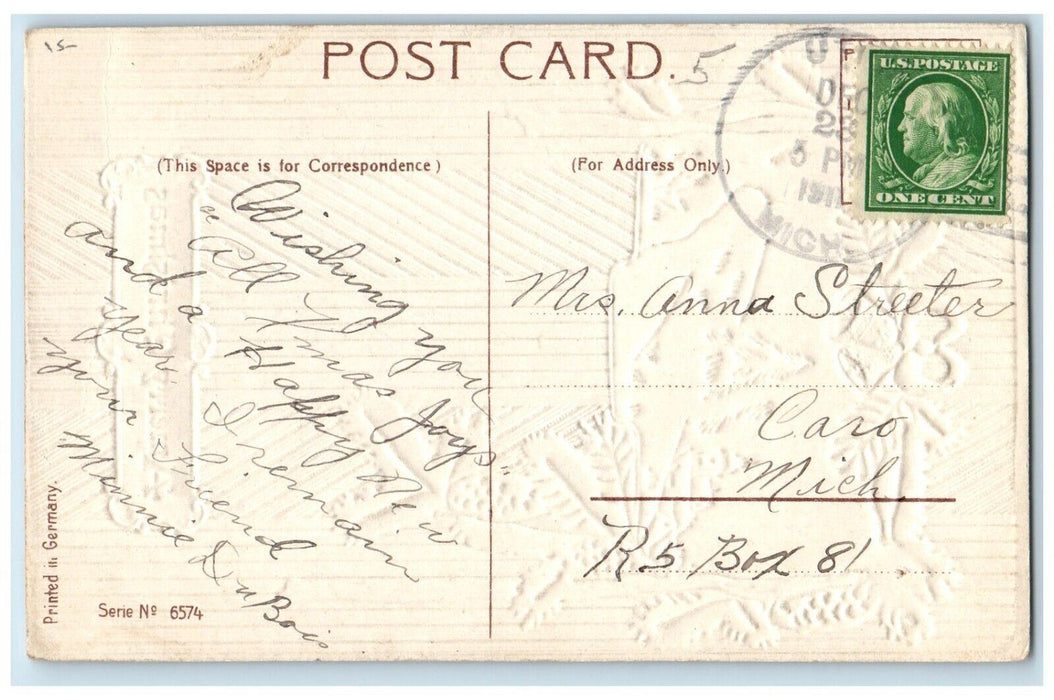 15-
POST CARD.
5
U.S. POSTAGE
ONE CENT
DEC
5 PM
MICH.
(This Space is for Correspondence)
(For Address Only.)
Wishing you
"all Xmas Joys"
and a Happy New
year. I remain
your Friend
Minnie DuBois
Mrs. Anna Streeter
Caro
Mich.
R5 Box 81
Printed in Germany.
Serie № 6574